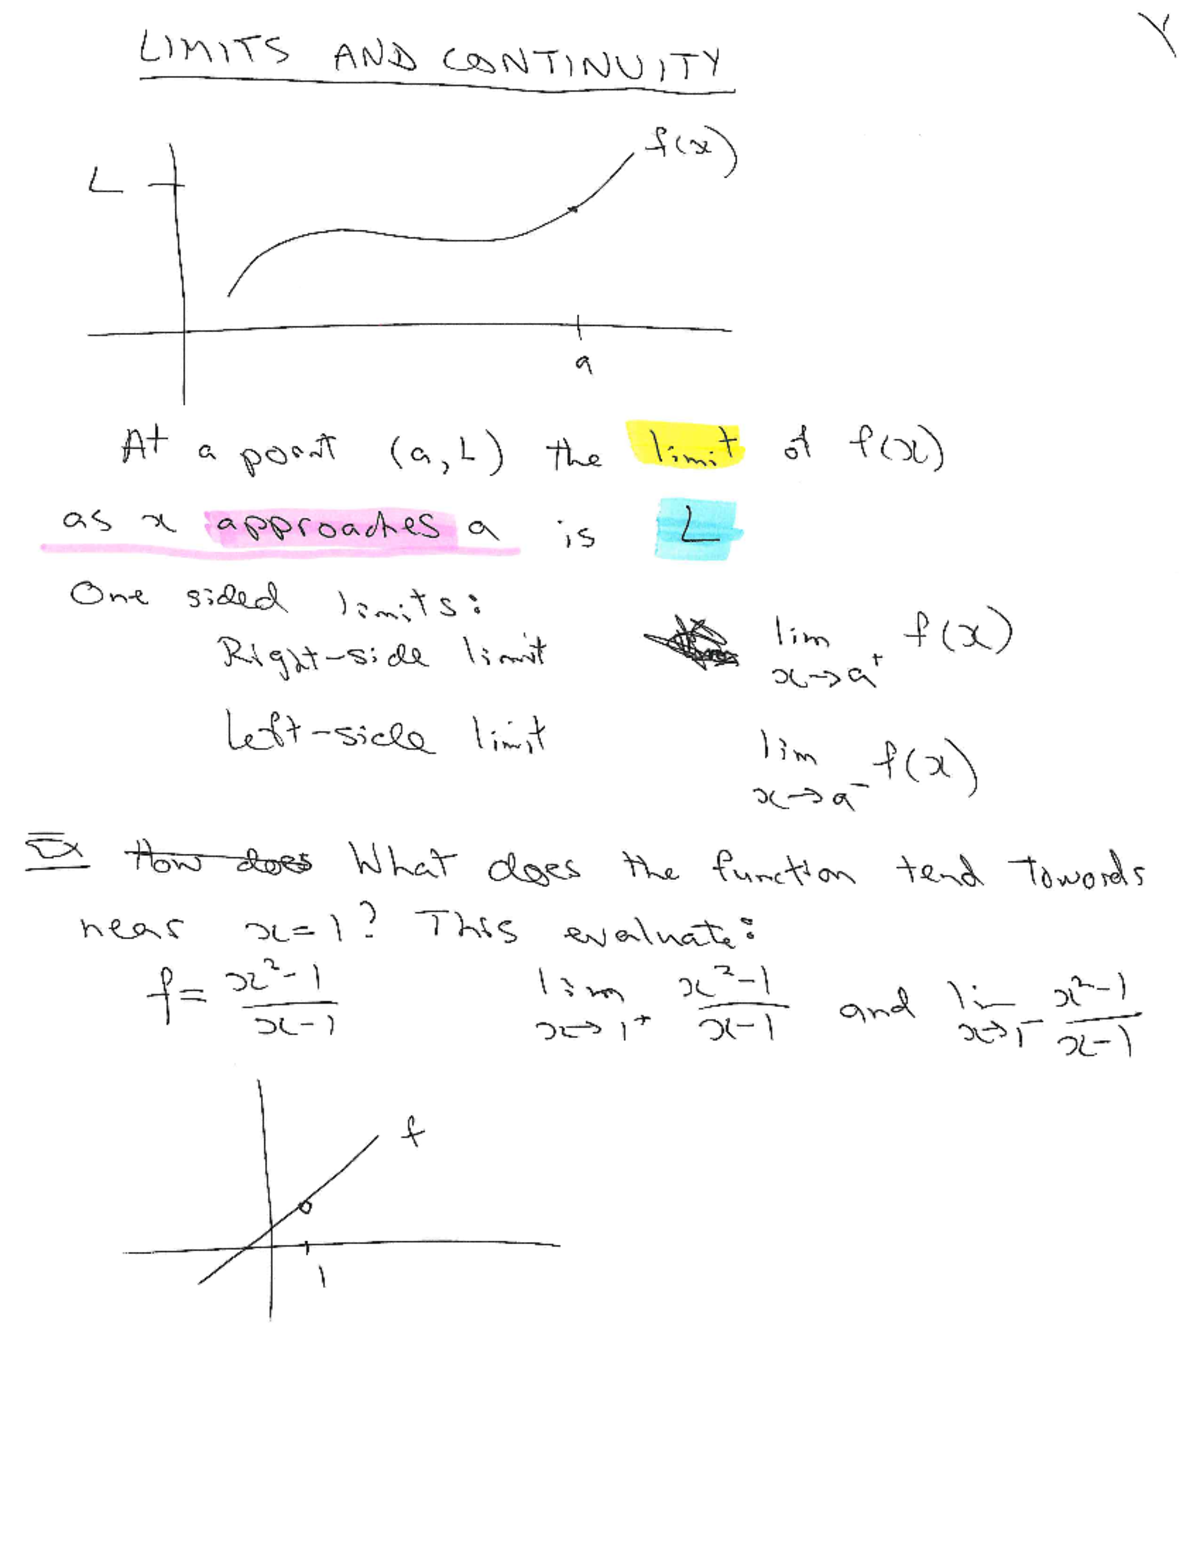 LIMITS AND CONTINUITY
f(x)
L
a
At a point (a, L) the limit of f(x)
as x approaches a is L
One sided limits:
Right-side limit lim x→a⁺ f(x)
Left-side limit lim x→a⁻ f(x)
Ex How does What does the function tend towards
near x=1? This evaluate:
f = (x²-1)/(x-1) lim x→1⁺ (x²-1)/(x-1) and lim x→1⁻ (x²-1)/(x-1)
f
1